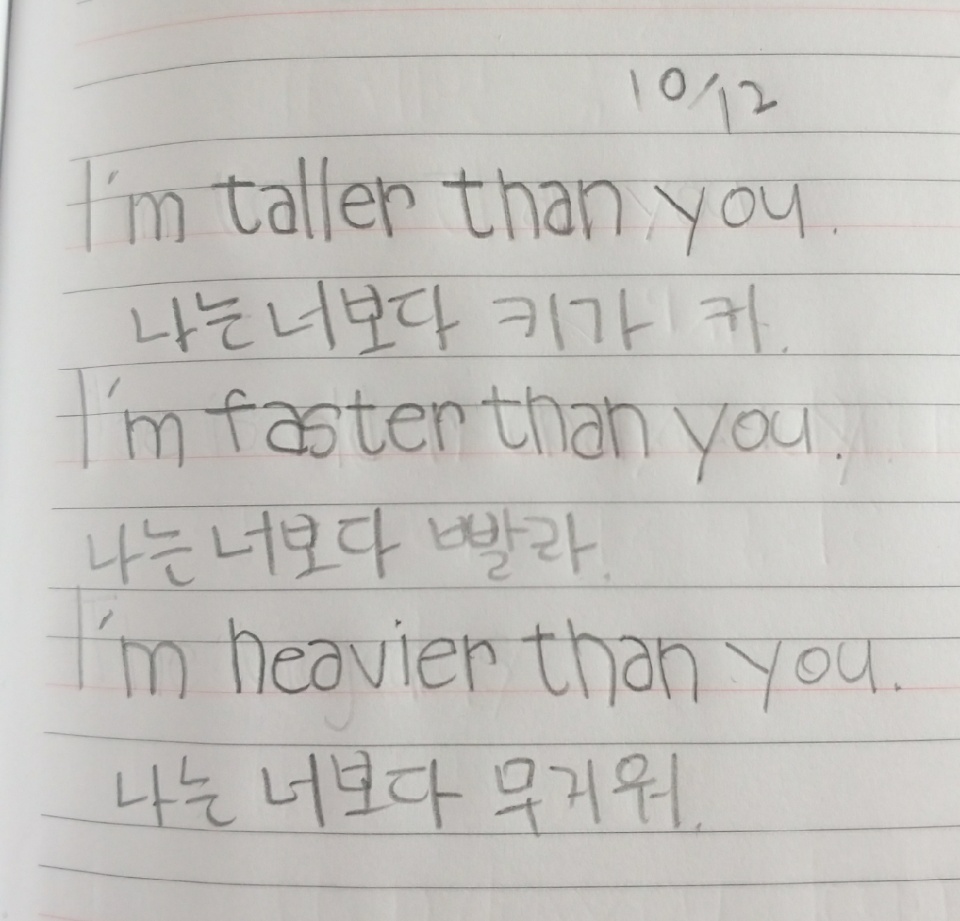 10/12
I'm taller than you.
나는 너보다 키가 커.
I'm faster than you.
나는 너보다 빨라.
I'm heavier than you.
나는 너보다 무거워.